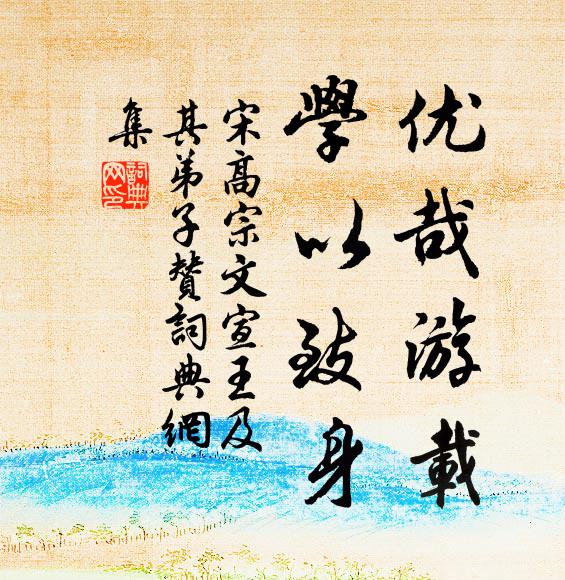 优哉游載
學以致身
宋高宗文宣王及
其弟子赞詞典網
集
詞典網印